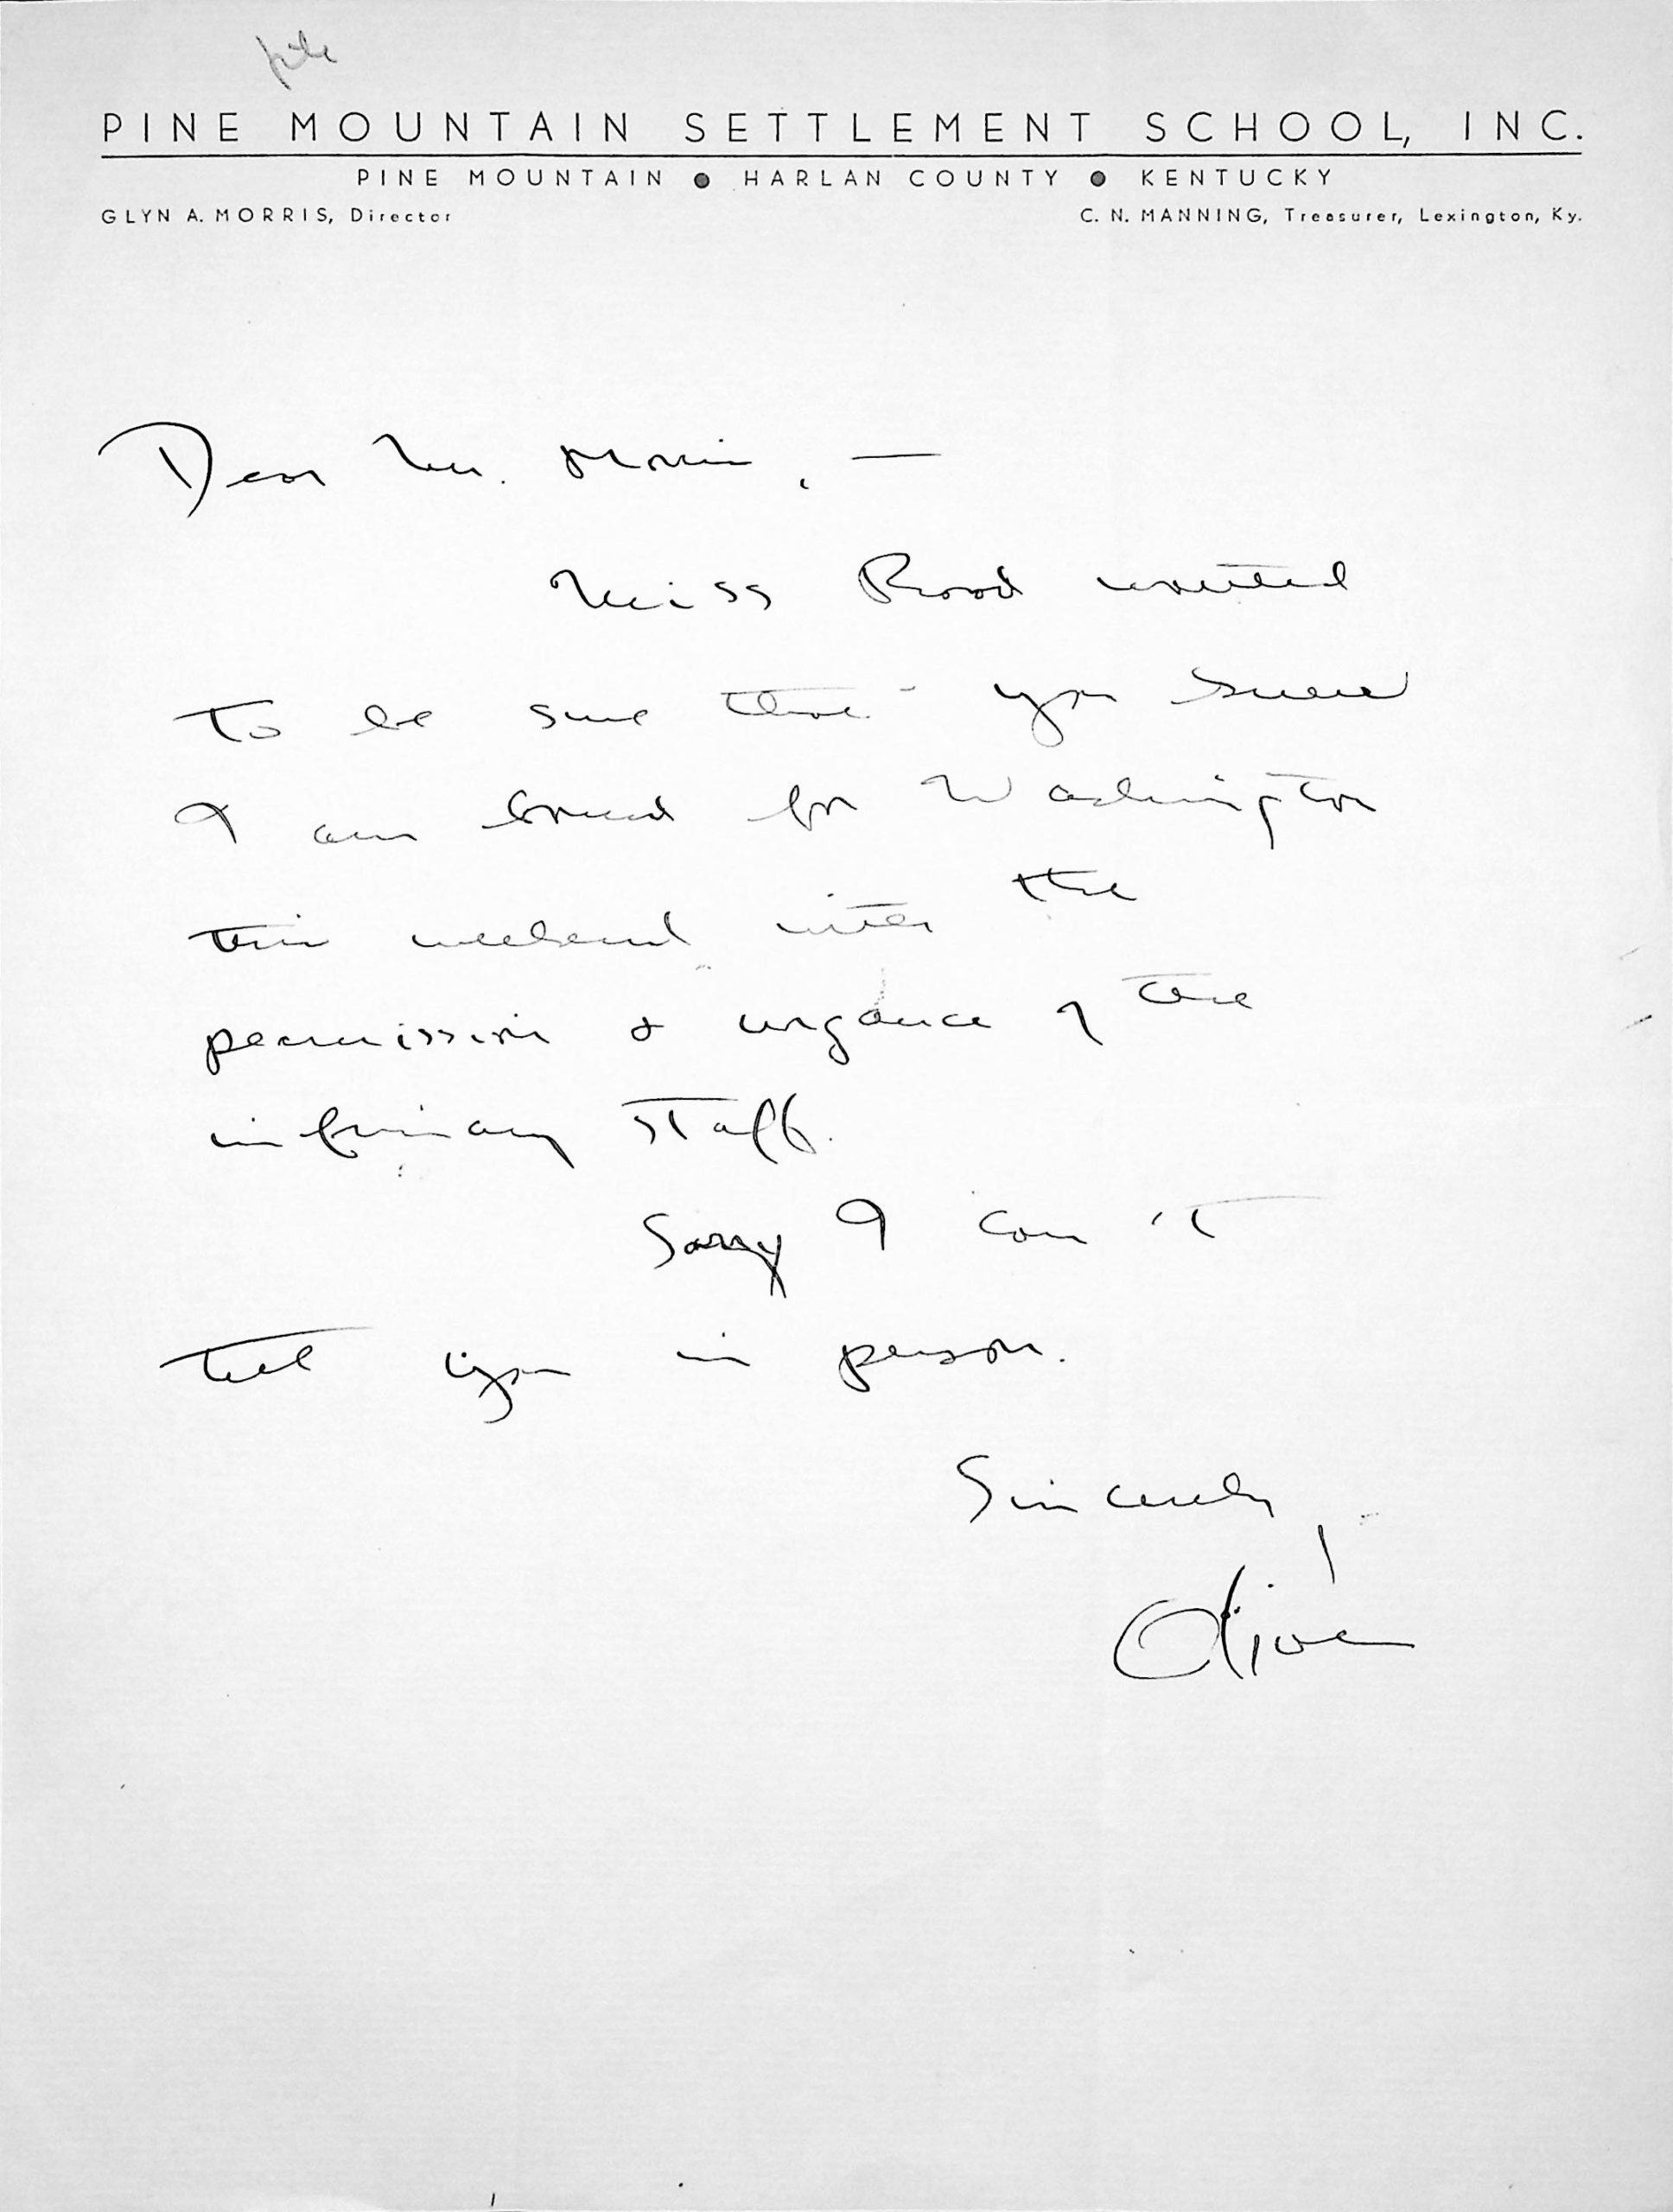 file
PINE MOUNTAIN SETTLEMENT SCHOOL, INC.
PINE MOUNTAIN ● HARLAN COUNTY ● KENTUCKY
GLYN A. MORRIS, Director C. N. MANNING, Treasurer, Lexington, Ky.
Dear Mr. Morris, —
Miss Rood wanted
to be sure that you knew
I am bound for Washington
this weekend with the
permission & urgance of the
infirmary staff.
Sorry I can't
tell you in person.
Sincerely,